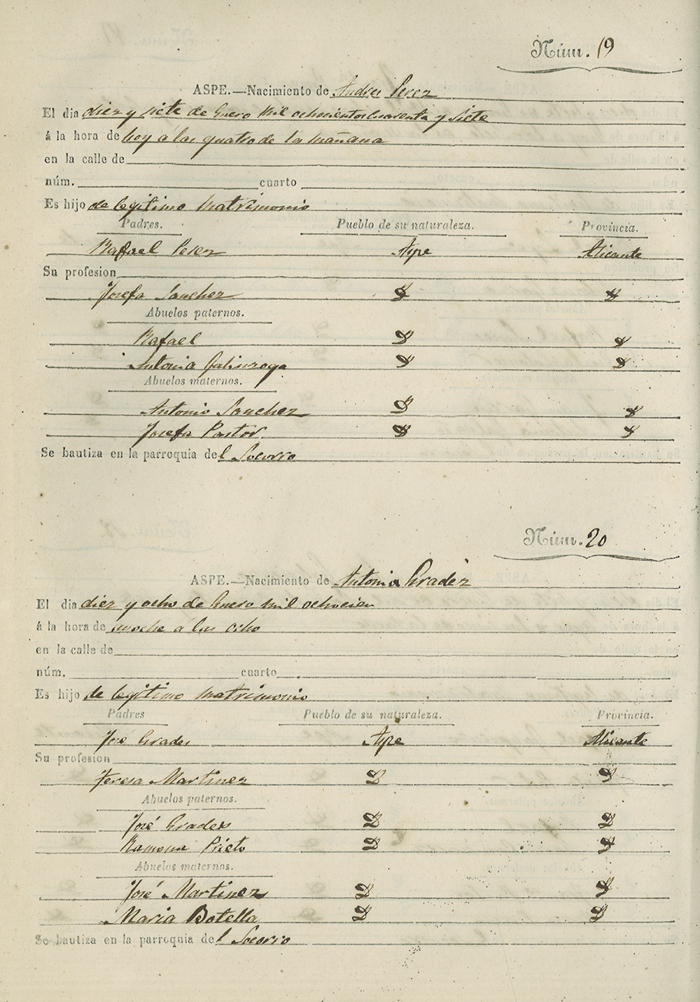 Núm. 19
ASPE.—Nacimiento de Andres Perez
El dia diez y siete de Enero mil ochocientos cuarenta y siete
á la hora de hoy a las quatro de la mañana
en la calle de
núm. cuarto
Es hijo de legitimo matrimonio
Padres. Pueblo de su naturaleza. Provincia.
Rafael Perez Aspe Alicante
Su profesion
Josefa Sanchez
Abuelos paternos.
Rafael
Antonia
Abuelos maternos.
Antonio Sanchez
Josefa Pastor
Se bautiza en la parroquia del Socorro
Núm. 20
ASPE.—Nacimiento de Antonia Prades
El dia diez y ocho de Enero mil ochocien
á la hora de noche á las
en la calle de
núm. cuarto
Es hijo de legitimo matrimonio
Padres Pueblo de su naturaleza. Provincia.
José Prades Aspe Alicante
Su profesion
Teresa Martinez
Abuelos paternos.
José Prades
Ramona Prieto
Abuelos maternos.
José Martinez
Maria Botella
Se bautiza en la parroquia del Socorro